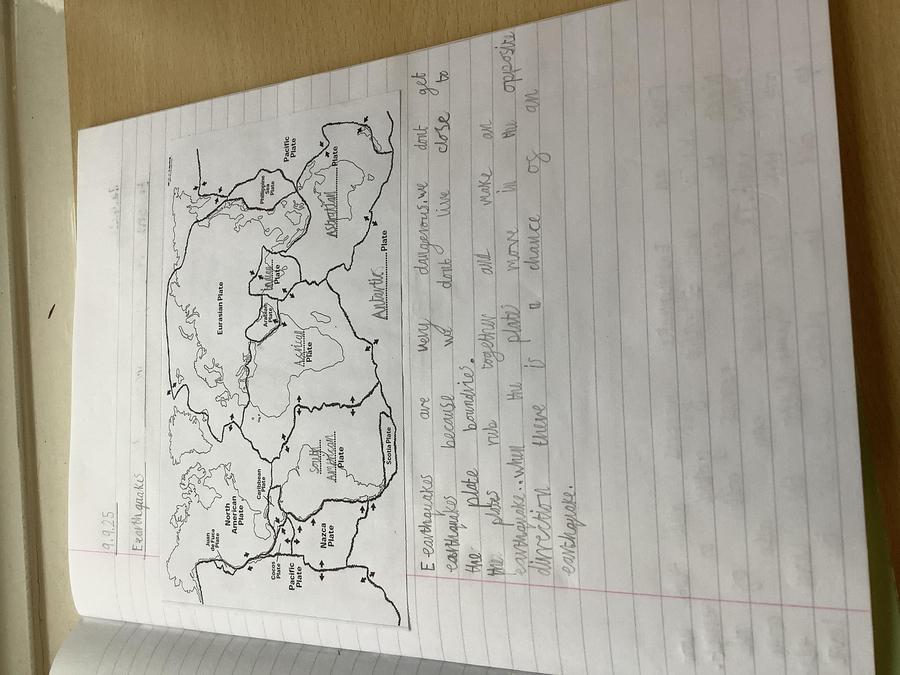 9.9.25
Exarthquakes
Juan de Fuca Plate
North American Plate
Caribbean Plate
Cocos Plate
Pacific Plate
Nazca Plate
South American Plate
Scotia Plate
African Plate
Eurasian Plate
Arabian Plate
Indian Plate
Philippine Sea Plate
Pacific Plate
Astralian Plate
Antartic Plate
E earthquakes are very dangerous. we dont get
earthquakes because we dont live close to
the plate boundries.
the plates rub together and make an
earthquake.. when the plates move in the opposite
direction there is a chance of an
earthquake.